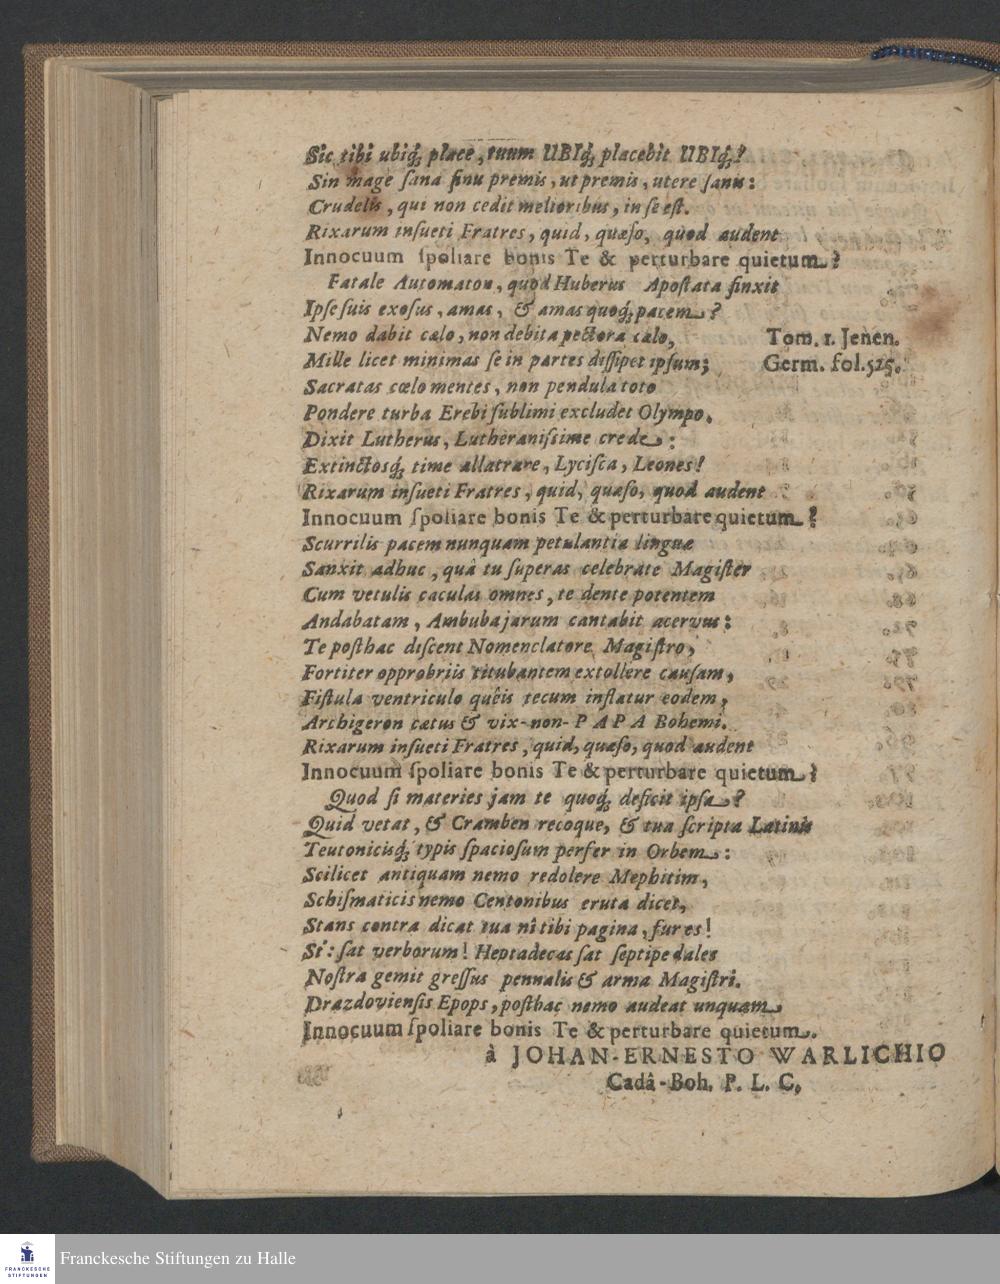 Sic tibi ubiq́; place, tuum UBIq́; placebit UBIq́;?
Sin mage ſana ſinu premis, ut premis, utere ſanis:
Crudelis, qui non cedit melioribus, in ſe eſt.
Rixarum inſueti Fratres, quid, quæſo, quod audent
Innocuum ſpoliare bonis Te & perturbare quietum?
Fatale Automaton, quod Huberus Apoſtata finxit
Ipſe ſuis exoſus, amas, & amas quoq́; pacem?
Nemo dabit cælo, non debita pectora cælo,
Tom. 1. Jenen.
Mille licet minimas ſe in partes diſſipet ipſum;
Germ. fol. 525.
Sacratas cœlo mentes, non pendula toto
Pondere turba Erebi ſublimi excludet Olympo.
Dixit Lutherus, Lutheraniſsime crede:
Extinctosq́; time allatrare, Lyciſca, Leones!
Rixarum inſueti Fratres, quid, quæſo, quod audent
Innocuum ſpoliare bonis Te & perturbare quietum?
Scurrilis pacem nunquam petulantia linguæ
Sanxit adhuc, quâ tu ſuperas celebrate Magiſter
Cum vetulis caculas omnes, te dente potentem
Andabatam, Ambubajarum cantabit acervus:
Te poſthac diſcent Nomenclatore Magiſtro,
Fortiter opprobriis titubantem extollere cauſam,
Fiſtula ventriculo quêis tecum inflatur eodem,
Archigeron cætus & vix-non-PAPA Bohemi.
Rixarum inſueti Fratres, quid, quæſo, quod audent
Innocuum ſpoliare bonis Te & perturbare quietum?
Quod ſi materies jam te quoq́; deficit ipſa?
Quid vetat, & Cramben recoque, & tua ſcripta Latinis
Teutonicisq́; typis ſpacioſum perfer in Orbem:
Scilicet antiquam nemo redolere Mephitim,
Schiſmaticis nemo Centonibus eruta dicet,
Stans contra dicat tua nî tibi pagina, fur es!
St': ſat verborum! Heptadecas ſat ſeptipedales
Noſtra gemit greſſus pennalis & arma Magiſtri.
Drazdovienſis Epops, poſthac nemo audeat unquam
Innocuum ſpoliare bonis Te & perturbare quietum.
à JOHAN-ERNESTO WARLICHIO
Cadâ-Boh. P. L. C.
FRANCKESCHE
STIFTUNGEN
Franckesche Stiftungen zu Halle